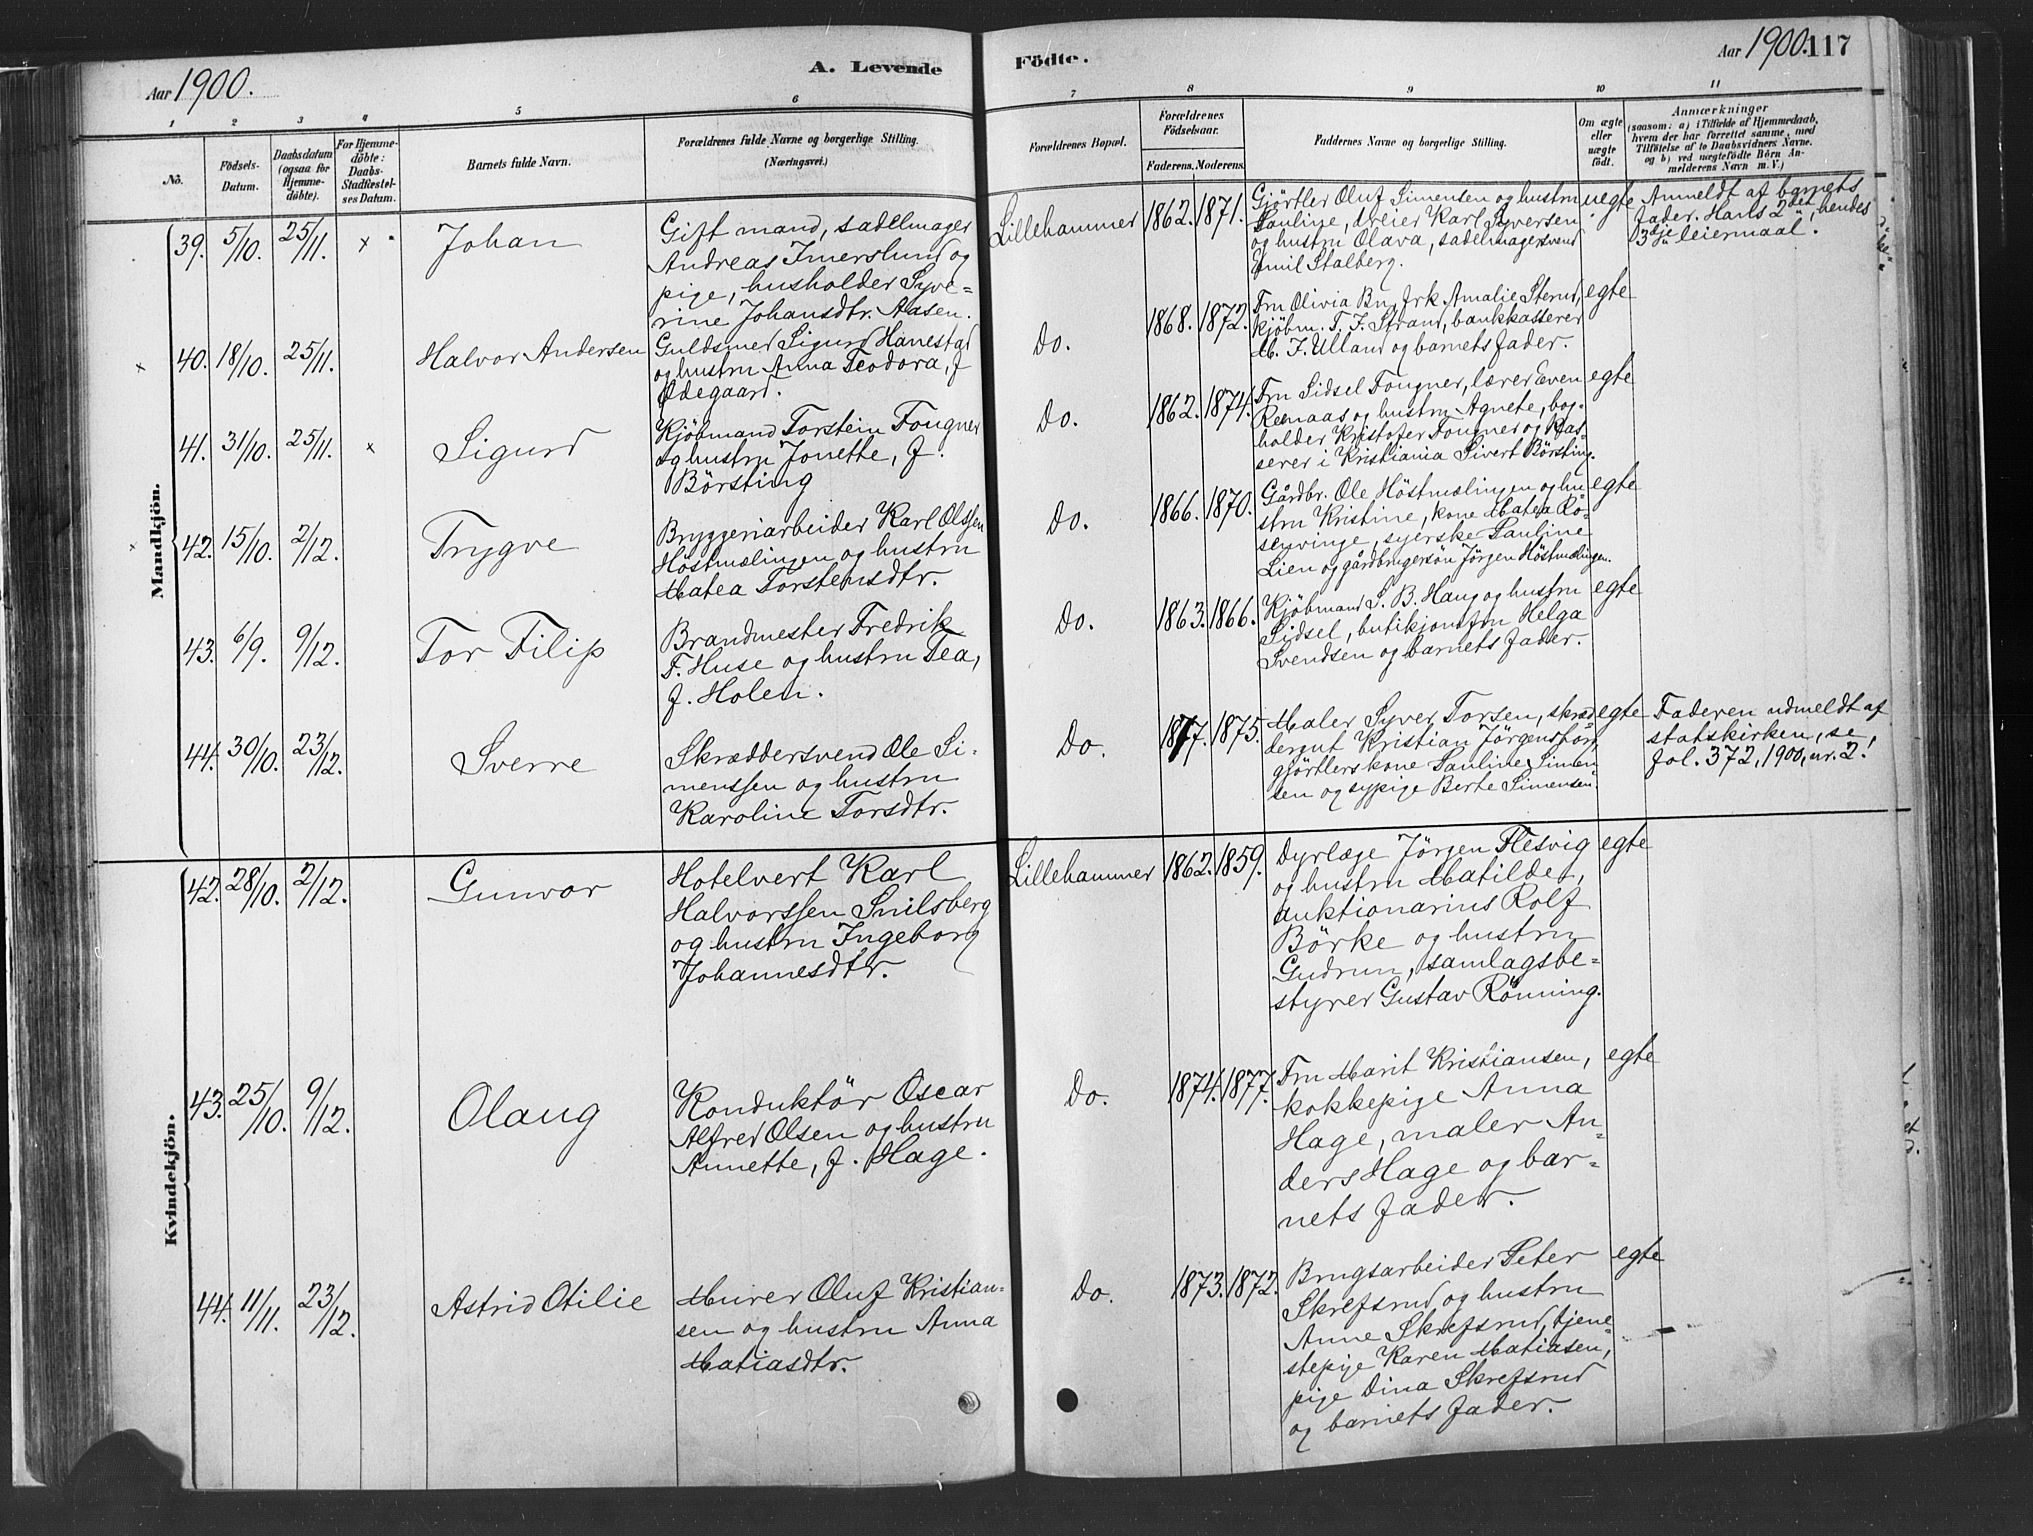 Aar 1900.
A. Levende
Födte.
Aar 1900.
117
1
2
3
4
5
6
7
8
9
10
11
No.
Födsels-
Datum.
Daabsdatum
(ogsaa for
Hjemme-
döbte).
For Hjemme-
döbte:
Daabs-
Stadfæstel-
ses Datum.
Barnets fulde Navn.
Forældrenes fulde Navne og borgerlige Stilling.
(Næringsvei.)
Forældrenes Bopæl.
Forældrenes
Födselsaar.
Faderens.
Moderens.
Faddernes Navne og borgerlige Stilling.
Om ægte
eller
uægte
födt.
Anmærkninger
(saasom: a) i Tilfælde af Hjemmedaab,
hvem der har forrettet samme, med
Tilföielse af to Daabsvidners Navne.
og b) ved uægtefödte Börn An-
melderens Navn m. V.)
Mandkjön.
39. 5/10. 25/11. x Johan
Gift mand, sadelmager
Andreas Imerslund og
pige, husholder Syve=
rine Johansdtr. Aasen.
Lillehammer 1862. 1871.
Gjörtler Oluf Simensen og hustru
Pauline, dreier Karl Syversen
og hustru Olava, sadelmagersvend
Emil Stalberg.
uegte.
Anmeldt af barnets
fader. Hans 2det, hendes
3dje leiermaal.
40. 18/10. 25/11. Halvor Andersen
Guldsmed Sigurd Hanestad
og hustru Anna Teodora, f.
Ödegaard.
Do. 1868. 1872.
Fru Olivia Bu, frk. Amalie Sterud,
kjöbm. T. F. Strand, bankkasserer
M. F. Ulland og barnets fader.
egte
41. 31/10. 25/11. x Sigurd
Kjöbmand Torstein Fougner
og hustru Jonette, f.
Börsting
Do. 1862. 1874.
Fru Sidsel Fougner, lærer Even
Remaas og hustru Agnete, bog-
holder Kristofer Fougner og kas-
serer i Kristiania Sivert Börsting.
egte
42. 15/10. 2/12. Trygve
Bryggeriarbeider Karl Olssen
Höstmælingen og hustru
Matea Torstensdtr.
Do. 1866. 1870.
Gårdbr. Ole Höstmælingen og hu
stru Kristine, kone Matea Ro-
senvinge, syerske Pauline
Lien og gårdbrugersön Jörgen Höstmælingen.
egte
43. 6/9. 9/12. Tor Filip
Brandmester Fredrik
F. Huse og hustru Tea,
f. Holen.
Do. 1863. 1866.
Kjöbmand S. B. Haug og hustru
Sidsel, butikjomfru Helga
Svendsen og barnets fader.
egte
44. 30/10. 23/12. Sverre
Skræddersvend Ole Si-
menssen og hustru
Karoline Torsdtr.
Do. 1877. 1875.
Maler Syver Torsen, skræd
dergut Kristian Jörgenssön,
gjörtlerskone Pauline Simen
sen og sypige Berte Simensen.
egte
Faderen udmeldt af
statskirken, se,
fol. 372, 1900, nr. 2!
Kvindekjön.
42. 28/10. 2/12. Gunvor
Hotelvert Karl
Halvorssen Snilsberg
og hustru Ingeborg
Johannesdtr.
Lillehammer 1862. 1859.
Dyrlæge Jörgen Flesvig
og hustru Matilde,
auktionarius Rolf
Börke og hustru
Gudrun, samlagsbe=
styrer Gustav Rönning.
egte
43. 25/10. 9/12. Olaug
Konduktör Oscar
Alfred Olsen og hustru
Annette, f. Hage.
Do. 1874. 1877.
Fru Marit Kristiansen,
kokkepige Anna
Hage, maler An=
ders Hage og bar=
nets fader.
egte
44. 11/11. 23/12. Astrid Otilie
Murer Oluf Kristian-
sen og hustru Anna
Matiasdtr.
Do. 1873. 1872.
Brugsarbeider Peter
Skrefsrud og hustru
Anne Skrefsrud, tjene=
stepige Karen Matiasen,
pige Dina Skrefsrud
og barnets fader.
egte